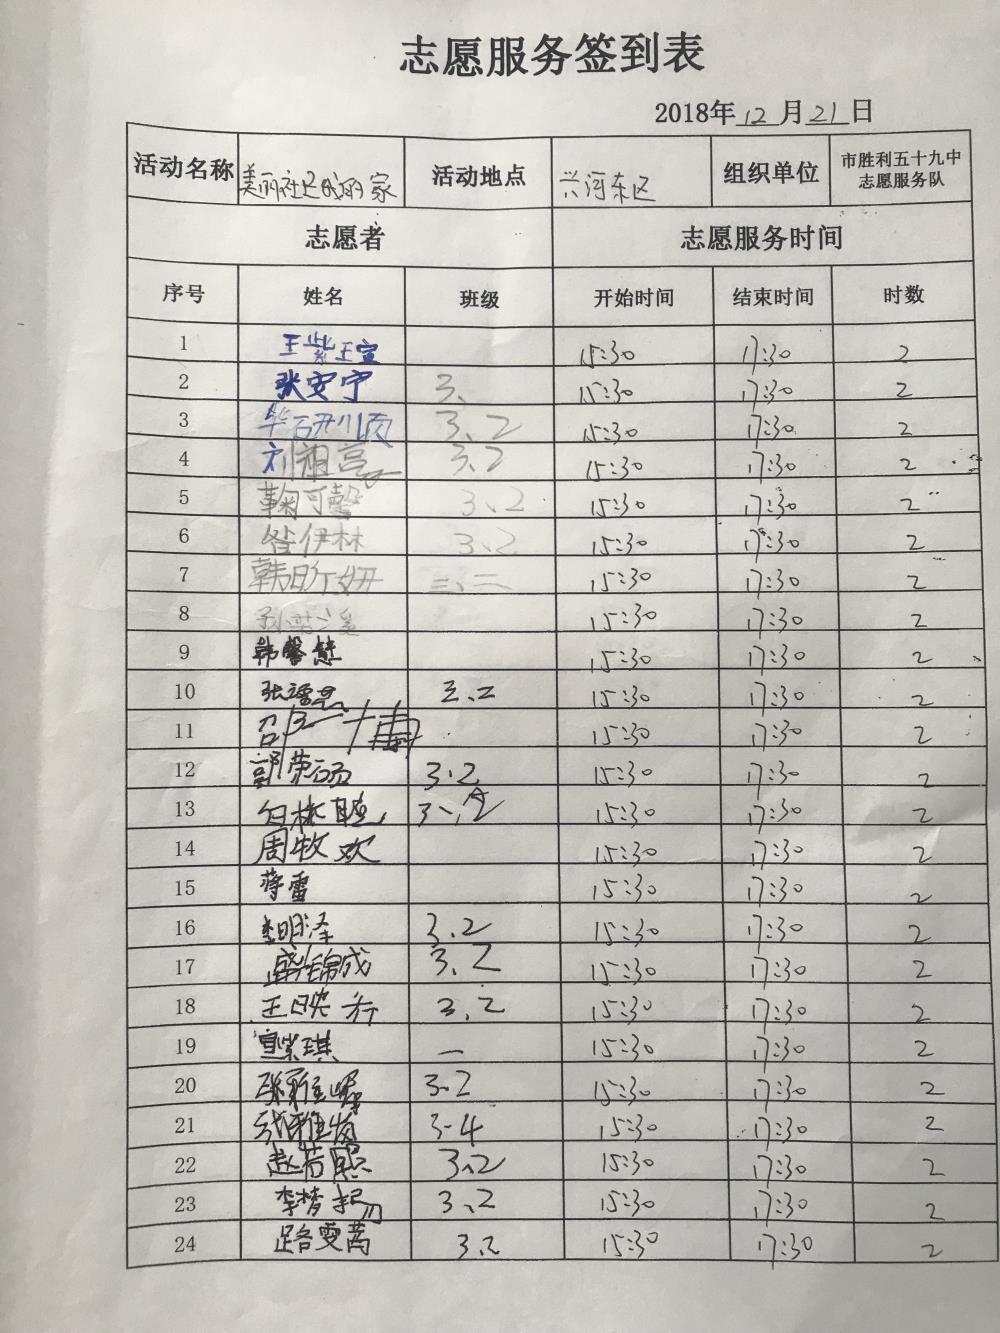 志愿服务签到表
2018年12月21日
活动名称 美丽社区我的家 活动地点 兴河东区 组织单位 市胜利五十九中
志愿服务队
志愿者 志愿服务时间
序号 姓名 班级 开始时间 结束时间 时数
1 王紫瑄 15:30 17:30 2
2 张安宁 3. 15:30 17:30 2
3 毕研顺 3、2 15:30 17:30 2
4 刘 3、2 15:30 17:30 2
5 鞠可馨 3、2 15:30 17:30 2
6 昝伊林 3、2 15:30 17:30 2
7 韩昕妍 三、二 15:30 17:30 2
8 15:30 17:30 2
9 韩馨慧 15:30 17:30 2
10 张 三、二 15:30 17:30 2
11 邵一博 15:30 17:30 2
12 郭荣硕 3、2 15:30 17:30 2
13 3、2 15:30 17:30 2
14 周牧欢 15:30 17:30 2
15 蒋雷 15:30 17:30 2
16 李明泽 3、2 15:30 17:30 2
17 盛锦成 3、2 15:30 17:30 2
18 王映予 3、2 15:30 17:30 2
19 紫琪 一 15:30 17:30 2
20 张雅 3-2 15:30 17:30 2
21 雅 3-4 15:30 17:30 2
22 赵若熙 3、2 15:30 17:30 2
23 李梦 3、2 15:30 17:30 2
24 路雯茜 3.2 15:30 17:30 2